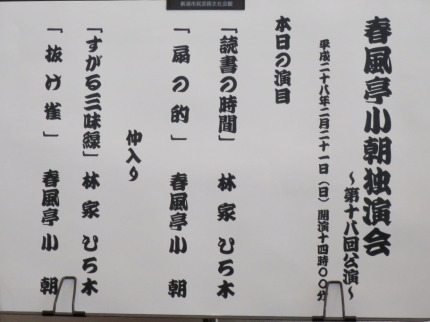 新潟市民芸能文化会館
春風亭小朝独演会
～第十八回公演～
平成二十八年二月二十一日（日）開演十四時〇〇分
本日の演目
「読書の時間」 林家ひろ木
「扇の的」 春風亭小朝
仲入り
「すがる三味線」 林家ひろ木
「抜け雀」 春風亭小朝